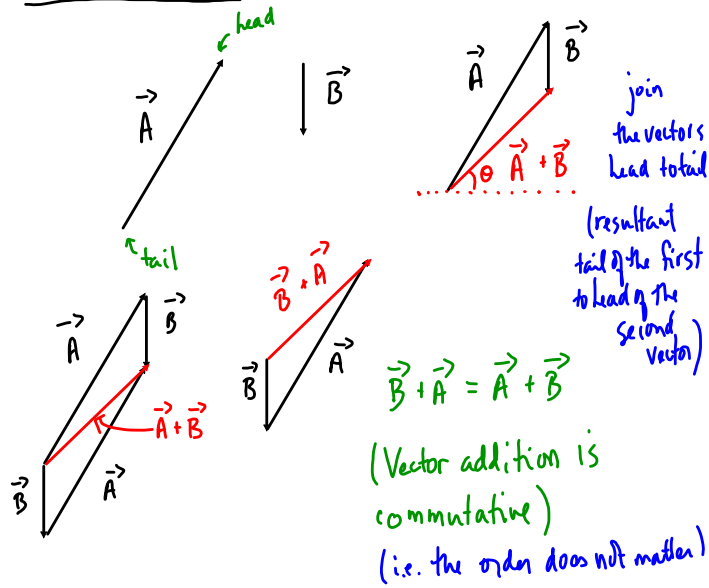 head
A
B
tail
A
B
θ A + B
join
the vectors
head to tail
(resultant
tail of the first
to head of the
second
vector)
A
B
A + B
B
A
B + A
B
A
B + A = A + B
(Vector addition is
commutative)
(i.e. the order does not matter)